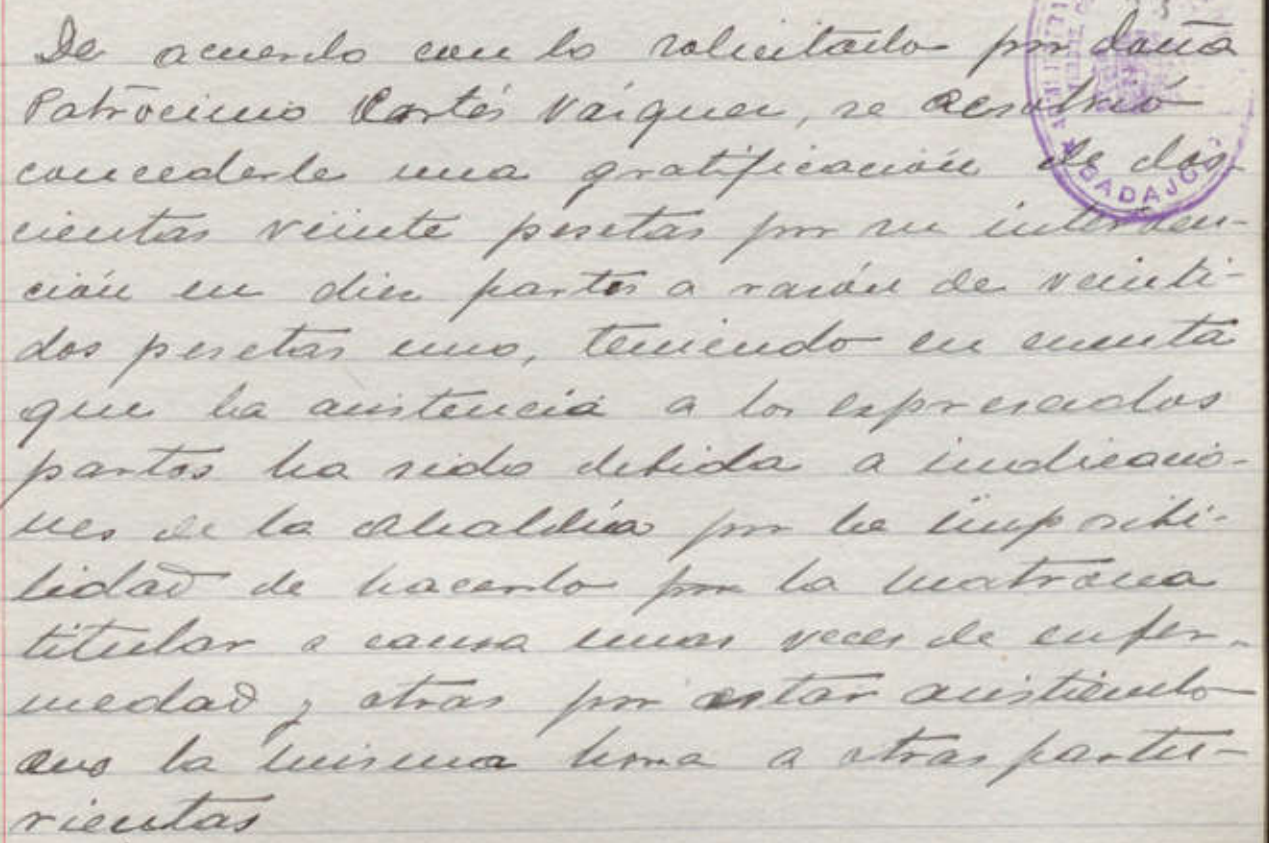 De acuerdo con lo solicitado por doña
Patrocinio Cortés Vázquez, se resolvió
concederle una gratificación de dos-
cientas veinte pesetas por su interven-
ción en diez partos a razón de veinti-
dos pesetas uno, teniendo en cuenta
que la asistencia a los expresados
partos ha sido debida a indicacio-
nes de la Alcaldía por la imposibi-
lidad de hacerlo por la matrona
titular a causa unas veces de enfer-
medad y otras por estar asistiendo
en la misma hora a otras partu-
rientas
BADAJOZ